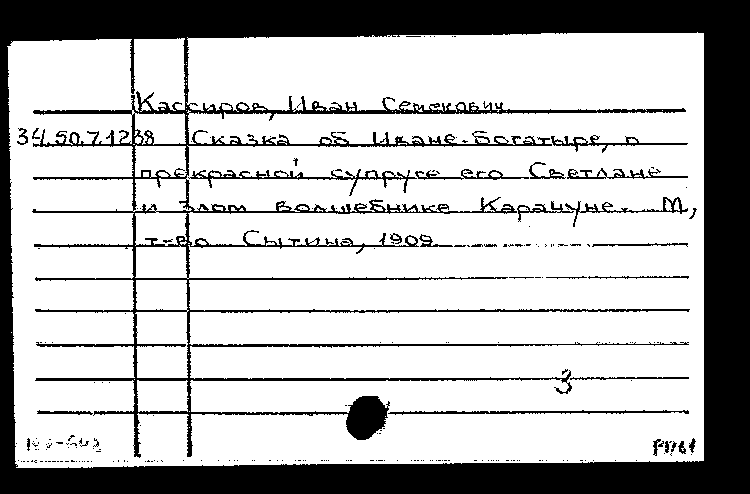 Кассиров, Иван Семенович.
34.50.7.1238 Сказка об Иване-богатыре, о
прекрасной супруге его Светлане
и злом волшебнике Карачуне. М,
т-во Сытина, 1909.
3